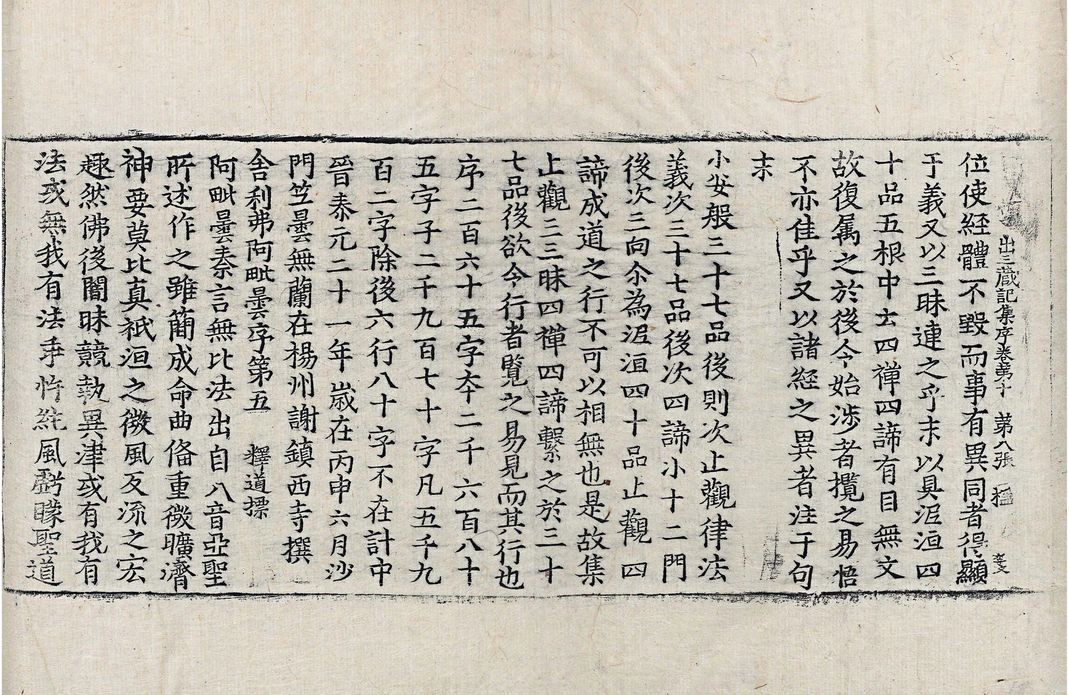 出三藏記集序卷第十　第八張
位使經體不毀而事有異同者得顯
于義又以三昧連之乎末以具泥洹四
十品五根中云四禪四諦有目無文
故復属之於後令始涉者攬之易悟
不亦佳乎又以諸經之異者注于句
末
小安般三十七品後則次止觀律法
義次三十七品後次四諦小十二門
後次三向尒為泥洹四十品止觀四
諦成道之行不可以相無也是故集
止觀三三昧四禪四諦繫之於三十
七品後欲令行者覽之易見而其行也
序二百六十五字夲二千六百八十
五字子二千九百七十字凡五千九
百二字除後六行八十字不在計中
晉泰元二十一年歲在丙申六月沙
門竺曇無蘭在楊州謝鎮西寺撰
舍利弗阿毗曇序第五　釋道標
阿毗曇秦言無比法出自八音亞聖
所述作之雖簡成命曲俻重徵曠濟
神要莫比真祇洹之微風反流之宏
趣然佛後闇昧競執異津或有我有
法或無我有法乖忤純風虧矇聖道